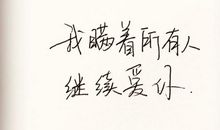 我瞒着所有人
继续爱你.